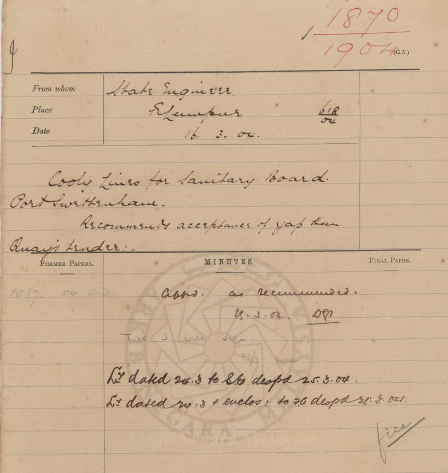 1870
1904 (G.S.)
From whom State Engineer
Place K Lumpur 618/04
Date 16. 3. 04.
Cooly Lines for Sanitary Board.
Port Swettenham.
Recommends acceptance of Yap Kwan
Quay's tender:
FORMER PAPERS. MINUTES. FINAL PAPER.
1057 04
Appd. as recommended.
Lr dated 24.3 to SE despd 25.3.04.
Lr dated 24.3 & enclos: to despd 25.3.04.
file